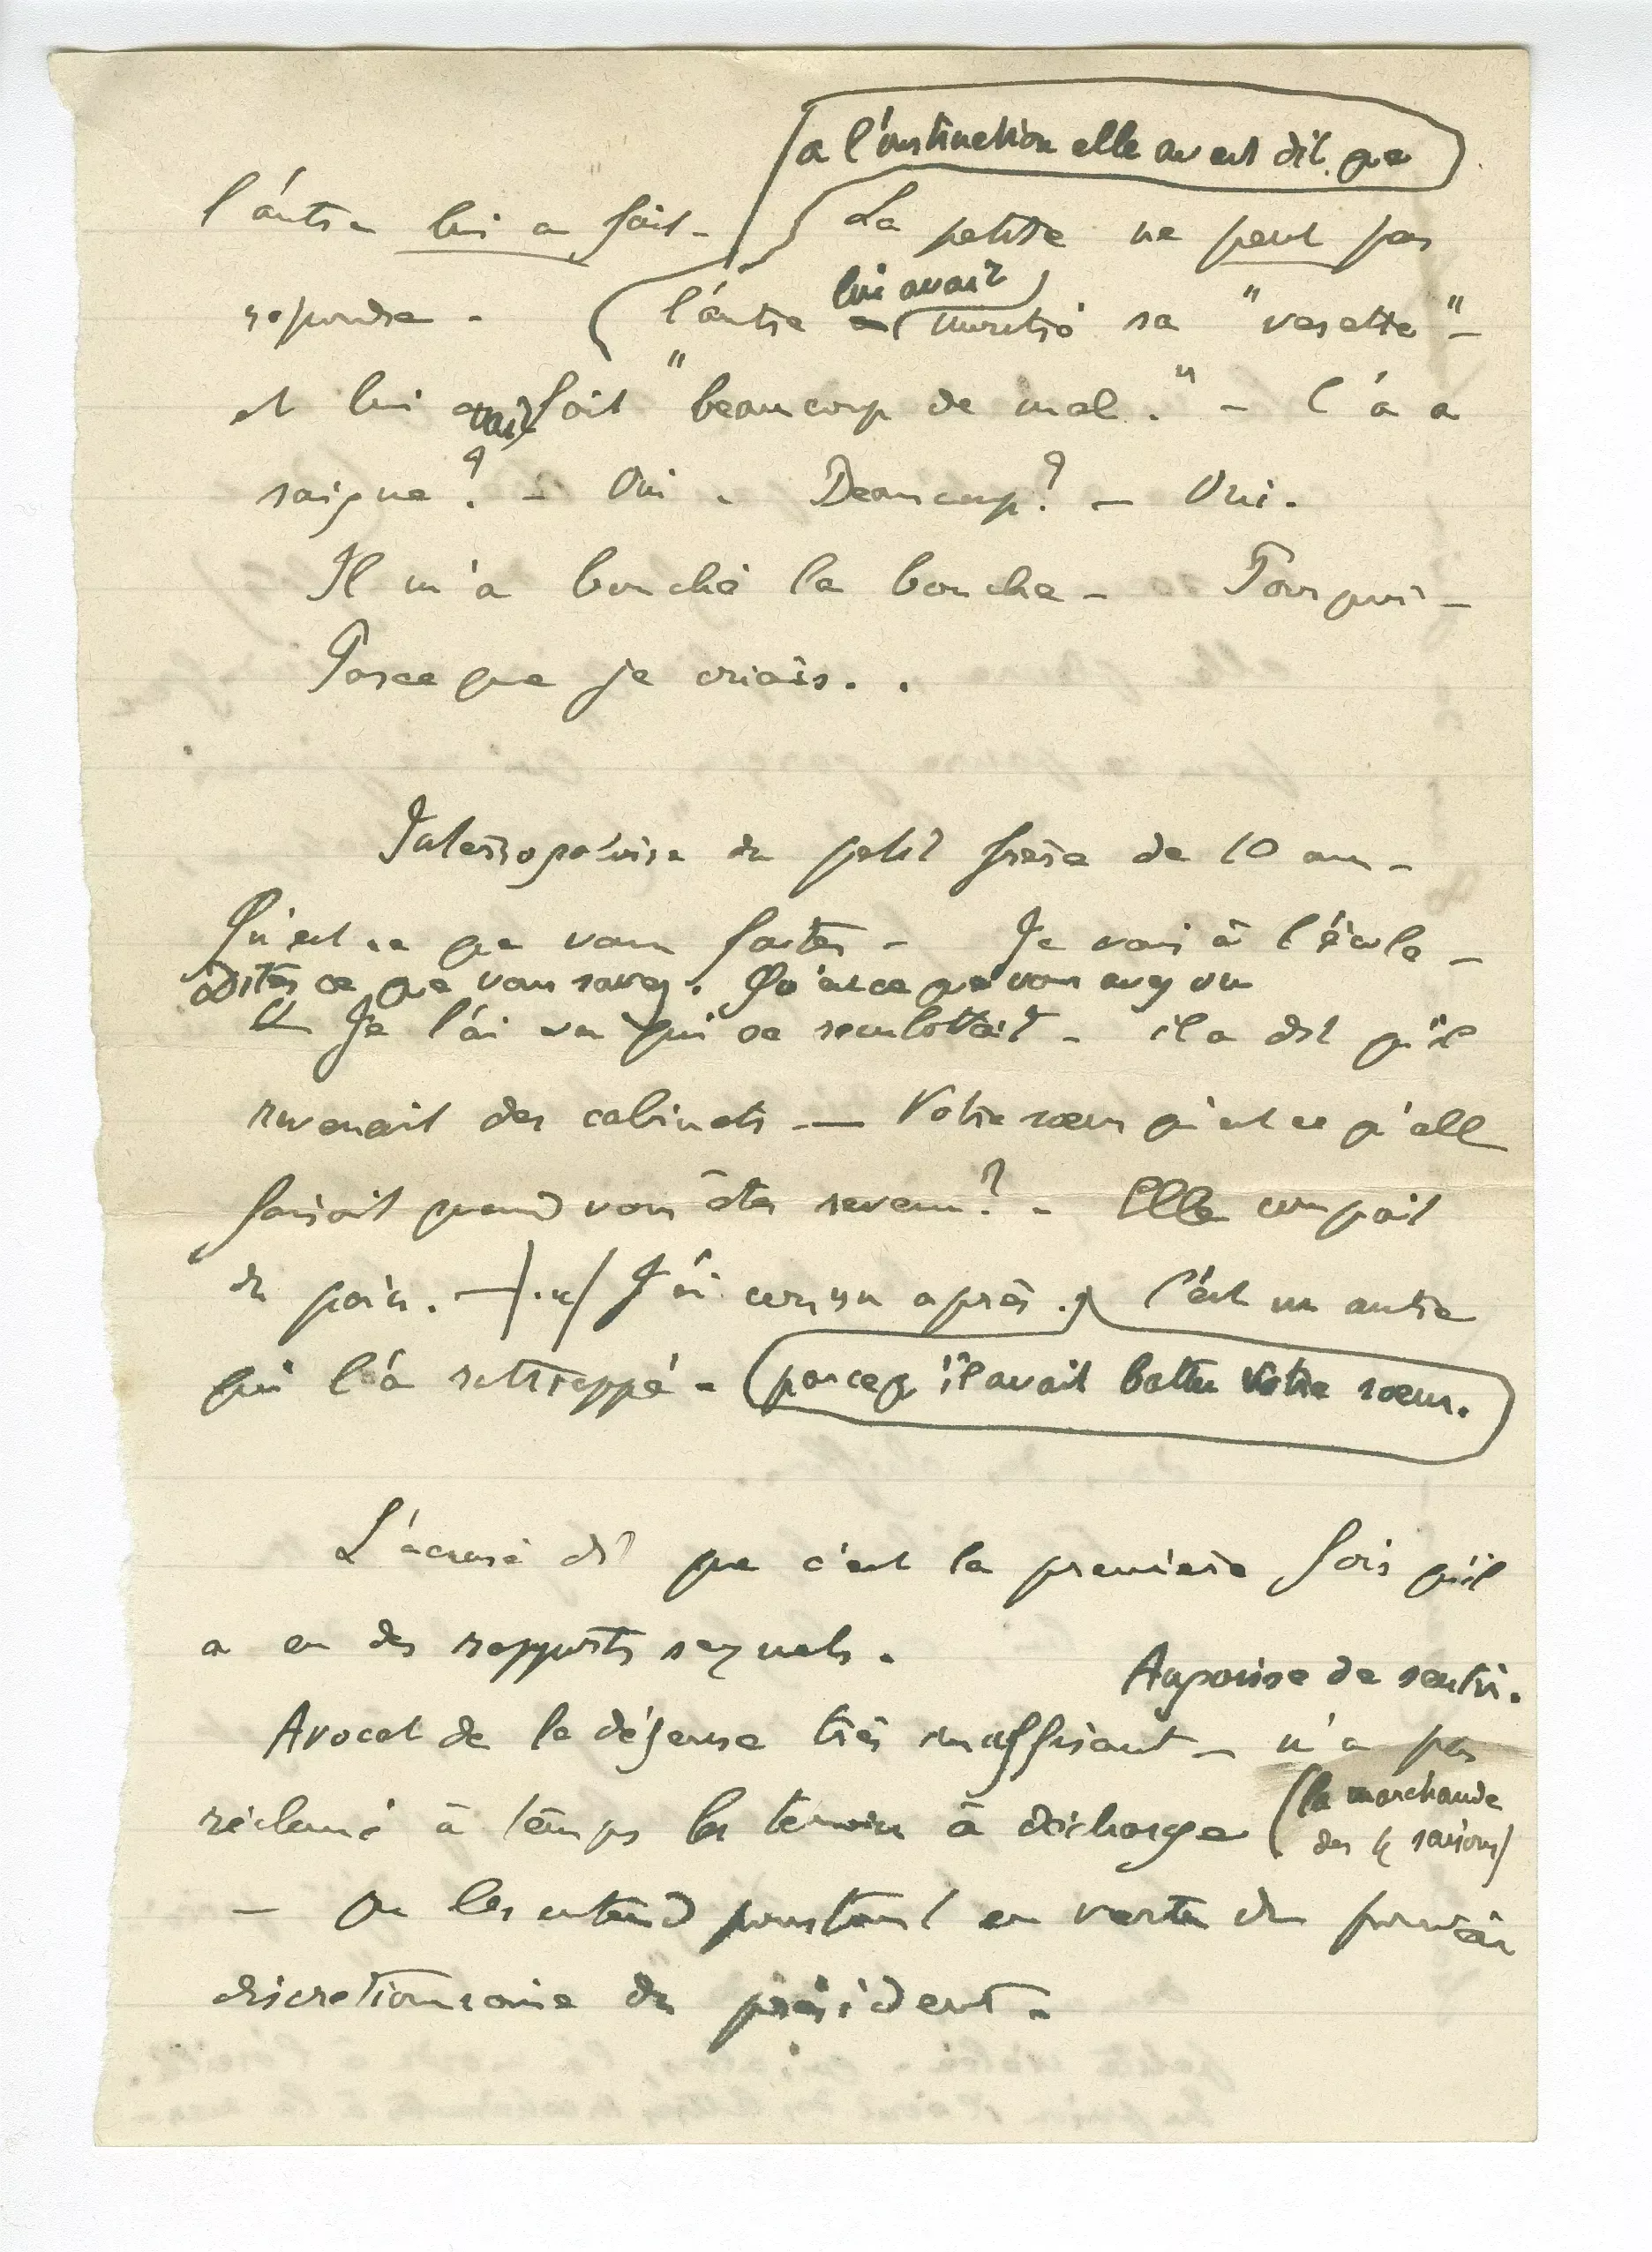 a l'instruction elle avait dit que
l'autre lui a fait - La petite ne peut pas
repondre - l'autre lui avait montré sa "verette" -
et lui avait fait "beaucoup de mal." - Ca a
saigne ? - Oui. Beaucoup ? - Oui.
Il m'a bouché la bouche - Pourquoi -
Parce que je criais. .
Interrogatoire du petit frère de 10 ans -
Qu'est ce que vous faites - Je vais à l'école -
dites ce que vous savez. Qu'est ce que vous avez vu
Je l'ai vu qui se reculottait - il a dit qu'il
revenait des cabinets - Votre sœur qu'est ce qu'elle
faisait quand vous êtes revenu ? - Elle coupait
du pain. - J'ai couru après. C'est un autre
qui l'a rattrappé - (parce qu'il avait battu Votre sœur.
L'accusé dit que c'est la première fois qu'il
a eu des rapports sexuels.
Avocat de la défense très insuffisant - n'a pas
réclamé à temps les temoins à décharge (la marchande
des 4 saisons)
- On les entend pourtant en vertu du pouvoir
discretionnaire du président -